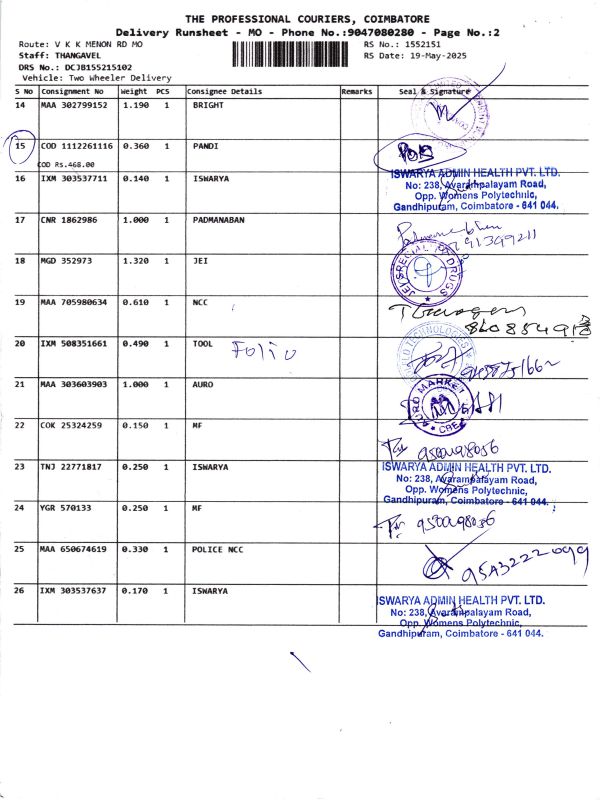 THE PROFESSIONAL COURIERS, COIMBATORE
Delivery Runsheet - MO - Phone No.:9047080280 - Page No.:2
Route: V K K MENON RD MO RS No.: 1552151
Staff: THANGAVEL RS Date: 19-May-2025
DRS No.: DCJB155215102
Vehicle: Two Wheeler Delivery
S No Consignment No Weight PCS Consignee Details Remarks Seal & Signature
14 MAA 302799152 1.190 1 BRIGHT
15 COD 1112261116 0.360 1 PANDI
COD Rs.468.00
16 IXM 303537711 0.140 1 ISWARYA
ISWARYA ADMIN HEALTH PVT. LTD.
No: 238, Avarampalayam Road,
Opp. Womens Polytechnic,
Gandhipuram, Coimbatore - 641 044.
17 CNR 1862986 1.000 1 PADMANABAN
18 MGD 352973 1.320 1 JEI
JEI SPECIAL DRUGS
19 MAA 705980634 0.610 1 NCC
20 IXM 508351661 0.490 1 TOOL Folio
TECHNOLOGIES
21 MAA 303603903 1.000 1 AURO
AURO MARKET CBE
22 COK 25324259 0.150 1 MF
23 TNJ 22771817 0.250 1 ISWARYA
ISWARYA ADMIN HEALTH PVT. LTD.
No: 238, Avarampalayam Road,
Opp. Womens Polytechnic,
Gandhipuram, Coimbatore - 641 044.
24 YGR 570133 0.250 1 MF
25 MAA 650674619 0.330 1 POLICE NCC
26 IXM 303537637 0.170 1 ISWARYA
ISWARYA ADMIN HEALTH PVT. LTD.
No: 238, Avarampalayam Road,
Opp. Womens Polytechnic,
Gandhipuram, Coimbatore - 641 044.